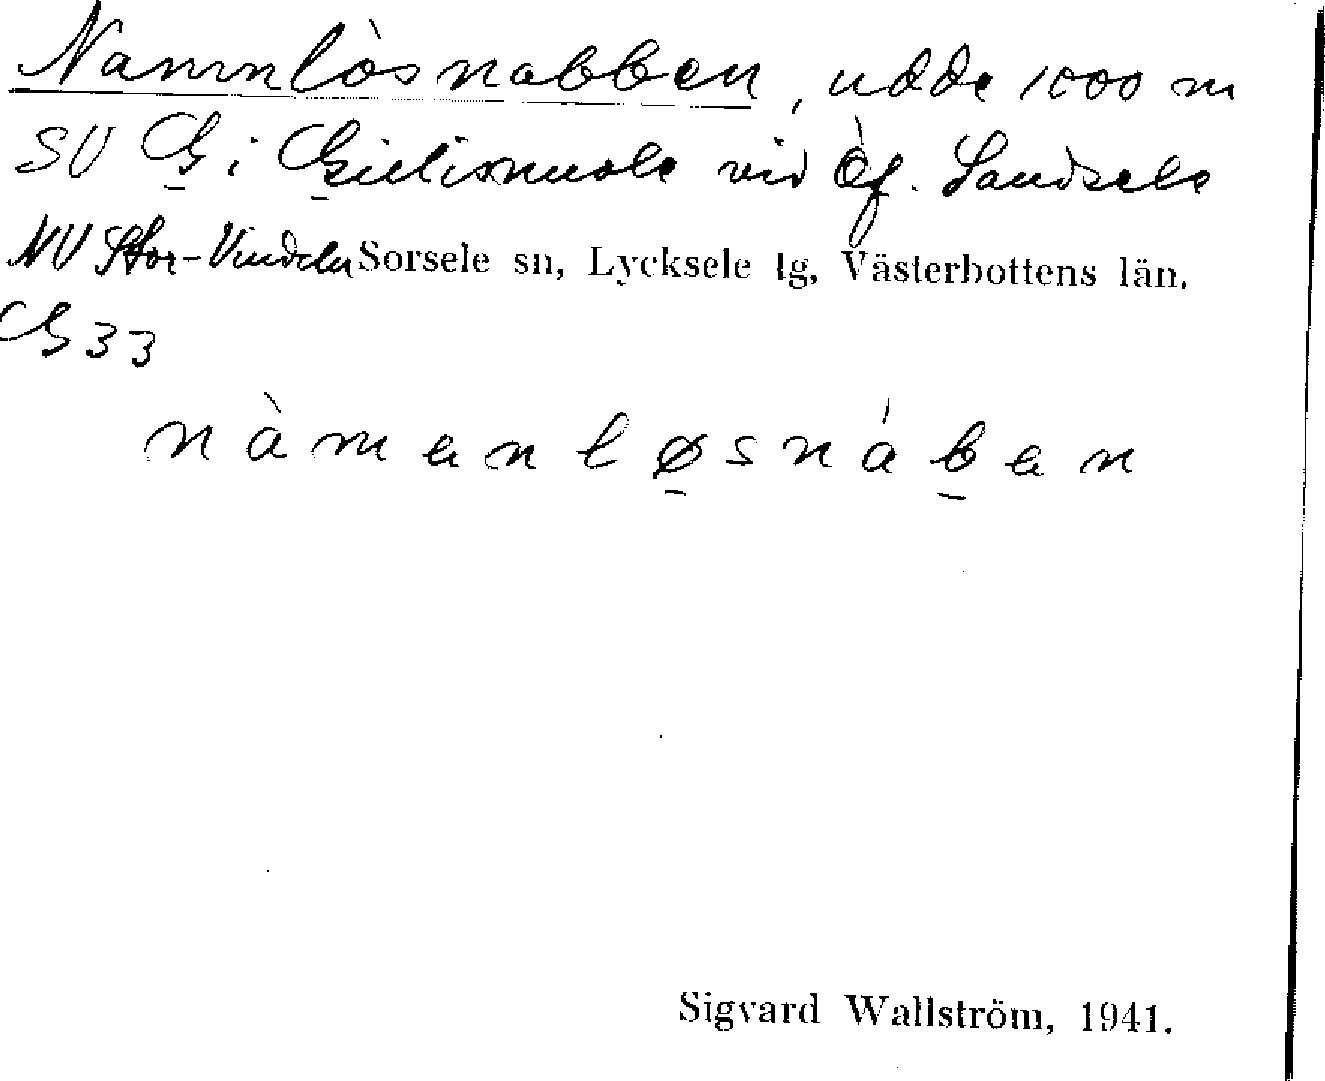 Namnlösnabben, udde 1000 m
SV G i Gielisnuole vid Öf. Sandsele
NV Stor-Vindeln Sorsele sn, Lycksele lg, Västerbottens län.
G 33
nàmənløsnábən
Sigvard Wallström, 1941.